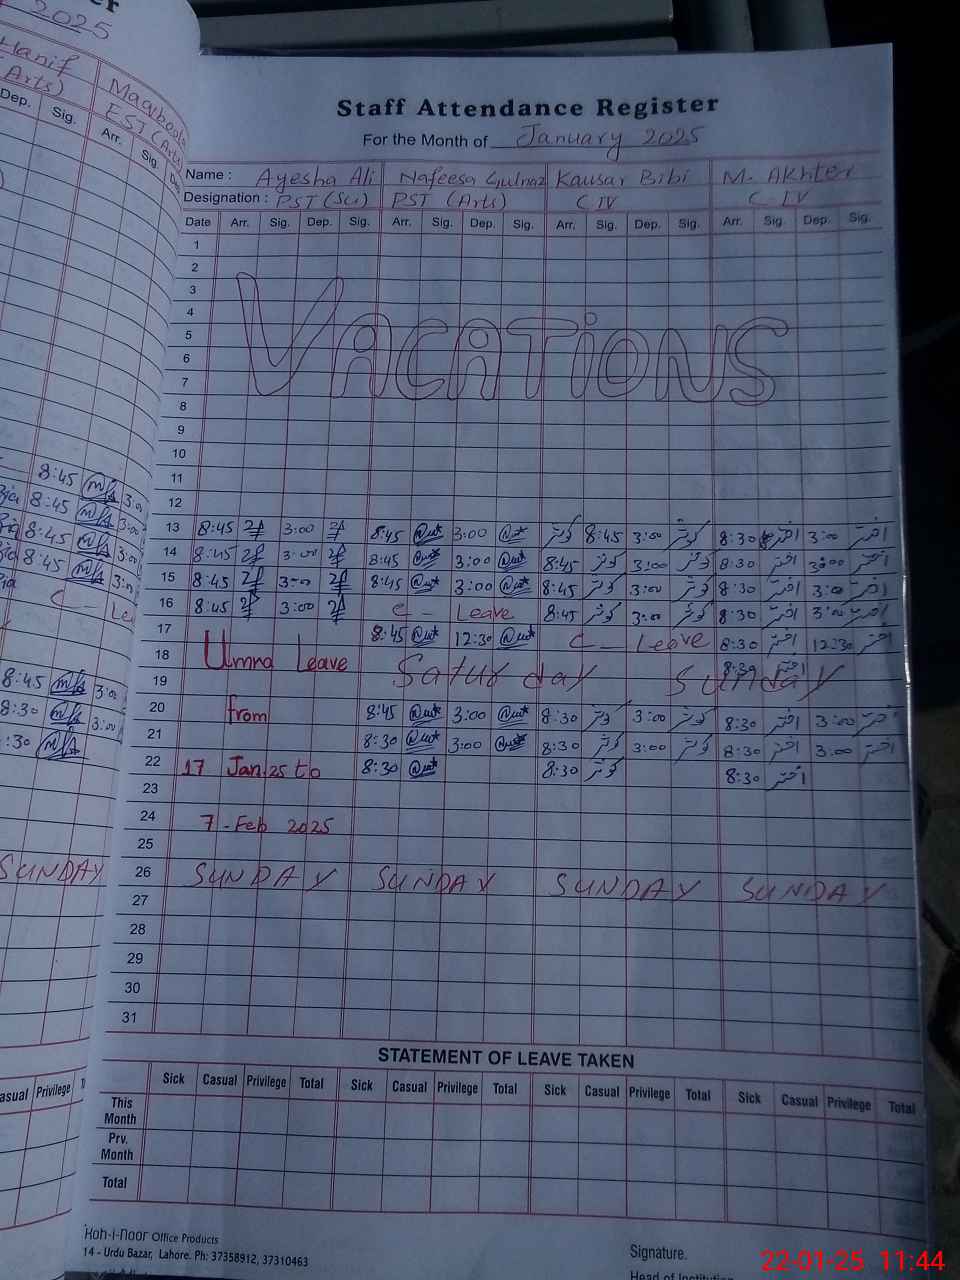 2025
Hanif
Arts)
Maqbool
EST (Arts)
Dep. Sig. Arr. Sig.
8:45 3:00
8:45 3:00
8:45 3:00
8:45 3:00
C - Le
8:45 3:00
8:30 3:00
:30
SUNDAY
asual Privilege
Staff Attendance Register
For the Month of January 2025
Name : Ayesha Ali Nafeesa Gulnaz Kausar Bibi M. Akhter
Designation : PST (Sci) PST (Arts) C IV C - IV
Date Arr. Sig. Dep. Sig. Arr. Sig. Dep. Sig. Arr. Sig. Dep. Sig. Arr. Sig. Dep. Sig.
1
2
3
4
VACATIONS
5
6
7
8
9
10
11
12
13 8:45 3:00 8:45 3:00 کوثر 8:45 3:00 کوثر 8:30 اختر 3:00 اختر
14 8:45 3:00 8:45 3:00 8:45 کوثر 3:00 کوثر 8:30 اختر 3:00 اختر
15 8:45 3:00 8:45 3:00 8:45 کوثر 3:00 کوثر 8:30 اختر 3:00 اختر
16 8:45 3:00 C - Leave 8:45 کوثر 3:00 کوثر 8:30 اختر 3:00 اختر
17 8:45 12:30 C - Leave 8:30 اختر 12:30 اختر
18 Umra Leave 8:30 اختر
19 Saturday Sunday
20 from 8:45 3:00 8:30 کوثر 3:00 کوثر 8:30 اختر 3:00 اختر
21 8:30 3:00 8:30 کوثر 3:00 کوثر 8:30 اختر 3:00 اختر
22 17 Jan.25 to 8:30 8:30 کوثر 8:30 اختر
23
24 7 - Feb 2025
25
26 SUNDAY SUNDAY SUNDAY SUNDAY
27
28
29
30
31
STATEMENT OF LEAVE TAKEN
Sick Casual Privilege Total Sick Casual Privilege Total Sick Casual Privilege Total Sick Casual Privilege Total
This Month
Prv. Month
Total
Koh-i-Noor Office Products
14 - Urdu Bazar, Lahore. Ph: 37358912, 37310463
Signature.
Head of Institution
22-01-25 11:44